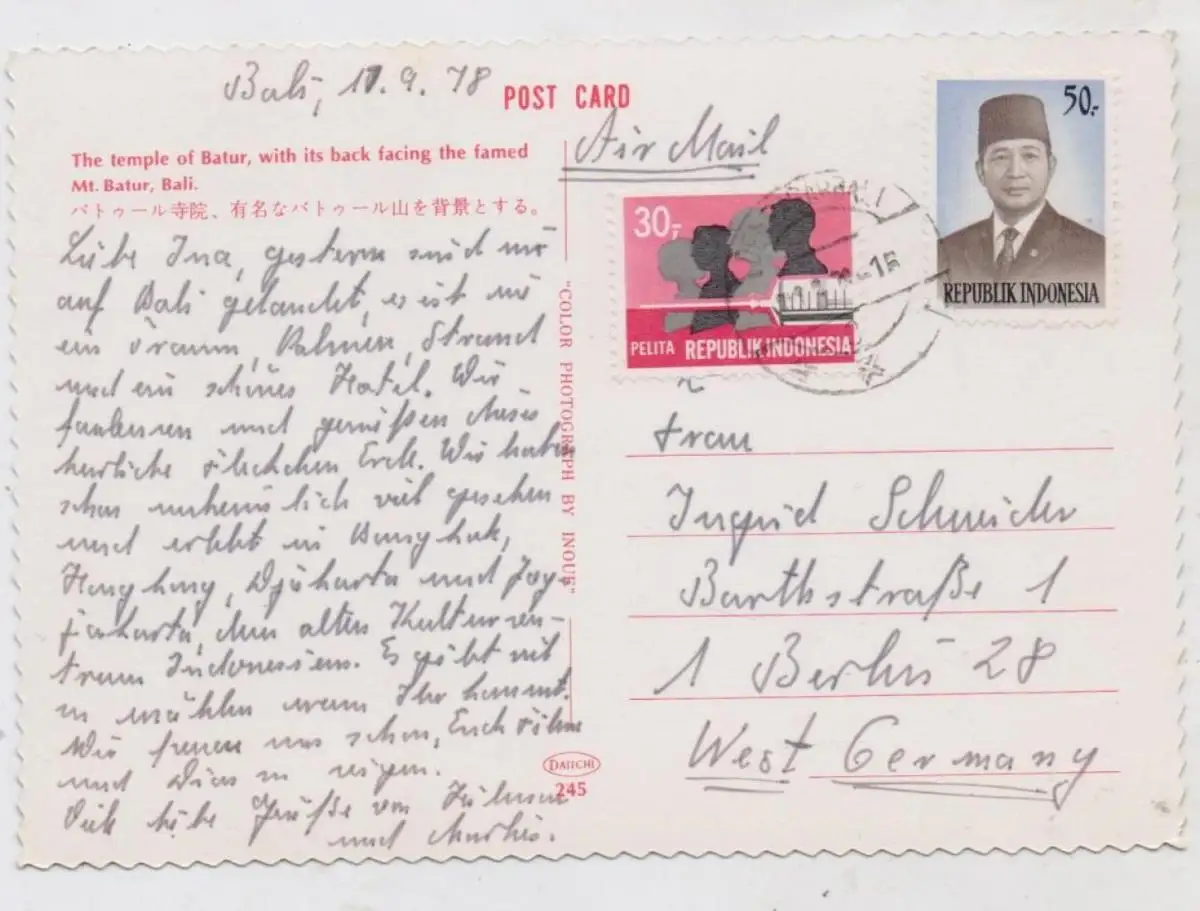 Bali, 11.9.78
POST CARD
Air Mail
The temple of Batur, with its back facing the famed
Mt. Batur, Bali.
バトゥール寺院、有名なバトゥール山を背景とする。
Liebe Ina, gestern sind wir
auf Bali gelandet, es ist wie
ein Traum, Palmen, Strand
und ein schönes Hotel. Wir
faulenzen und genießen dieses
herrliche Erde. Wir haben
schon unheimlich viel gesehen
und erlebt in Bangkok,
Hongkong, Djakarta und Jog-
jakarta, dem alten Kulturzen-
trum Indonesiens. Es gibt viel
zu erzählen wenn Ihr kommt.
Wir freuen uns schon, Euch Filme
und Dias zu zeigen.
Viele liebe Grüße von
und
"COLOR PHOTOGRAPH BY INOUE"
DAIICHI
245
30,-
PELITA REPUBLIK INDONESIA
50,-
REPUBLIK INDONESIA
Frau
Ingrid Schneider
Barthstraße 1
1 Berlin 28
West Germany